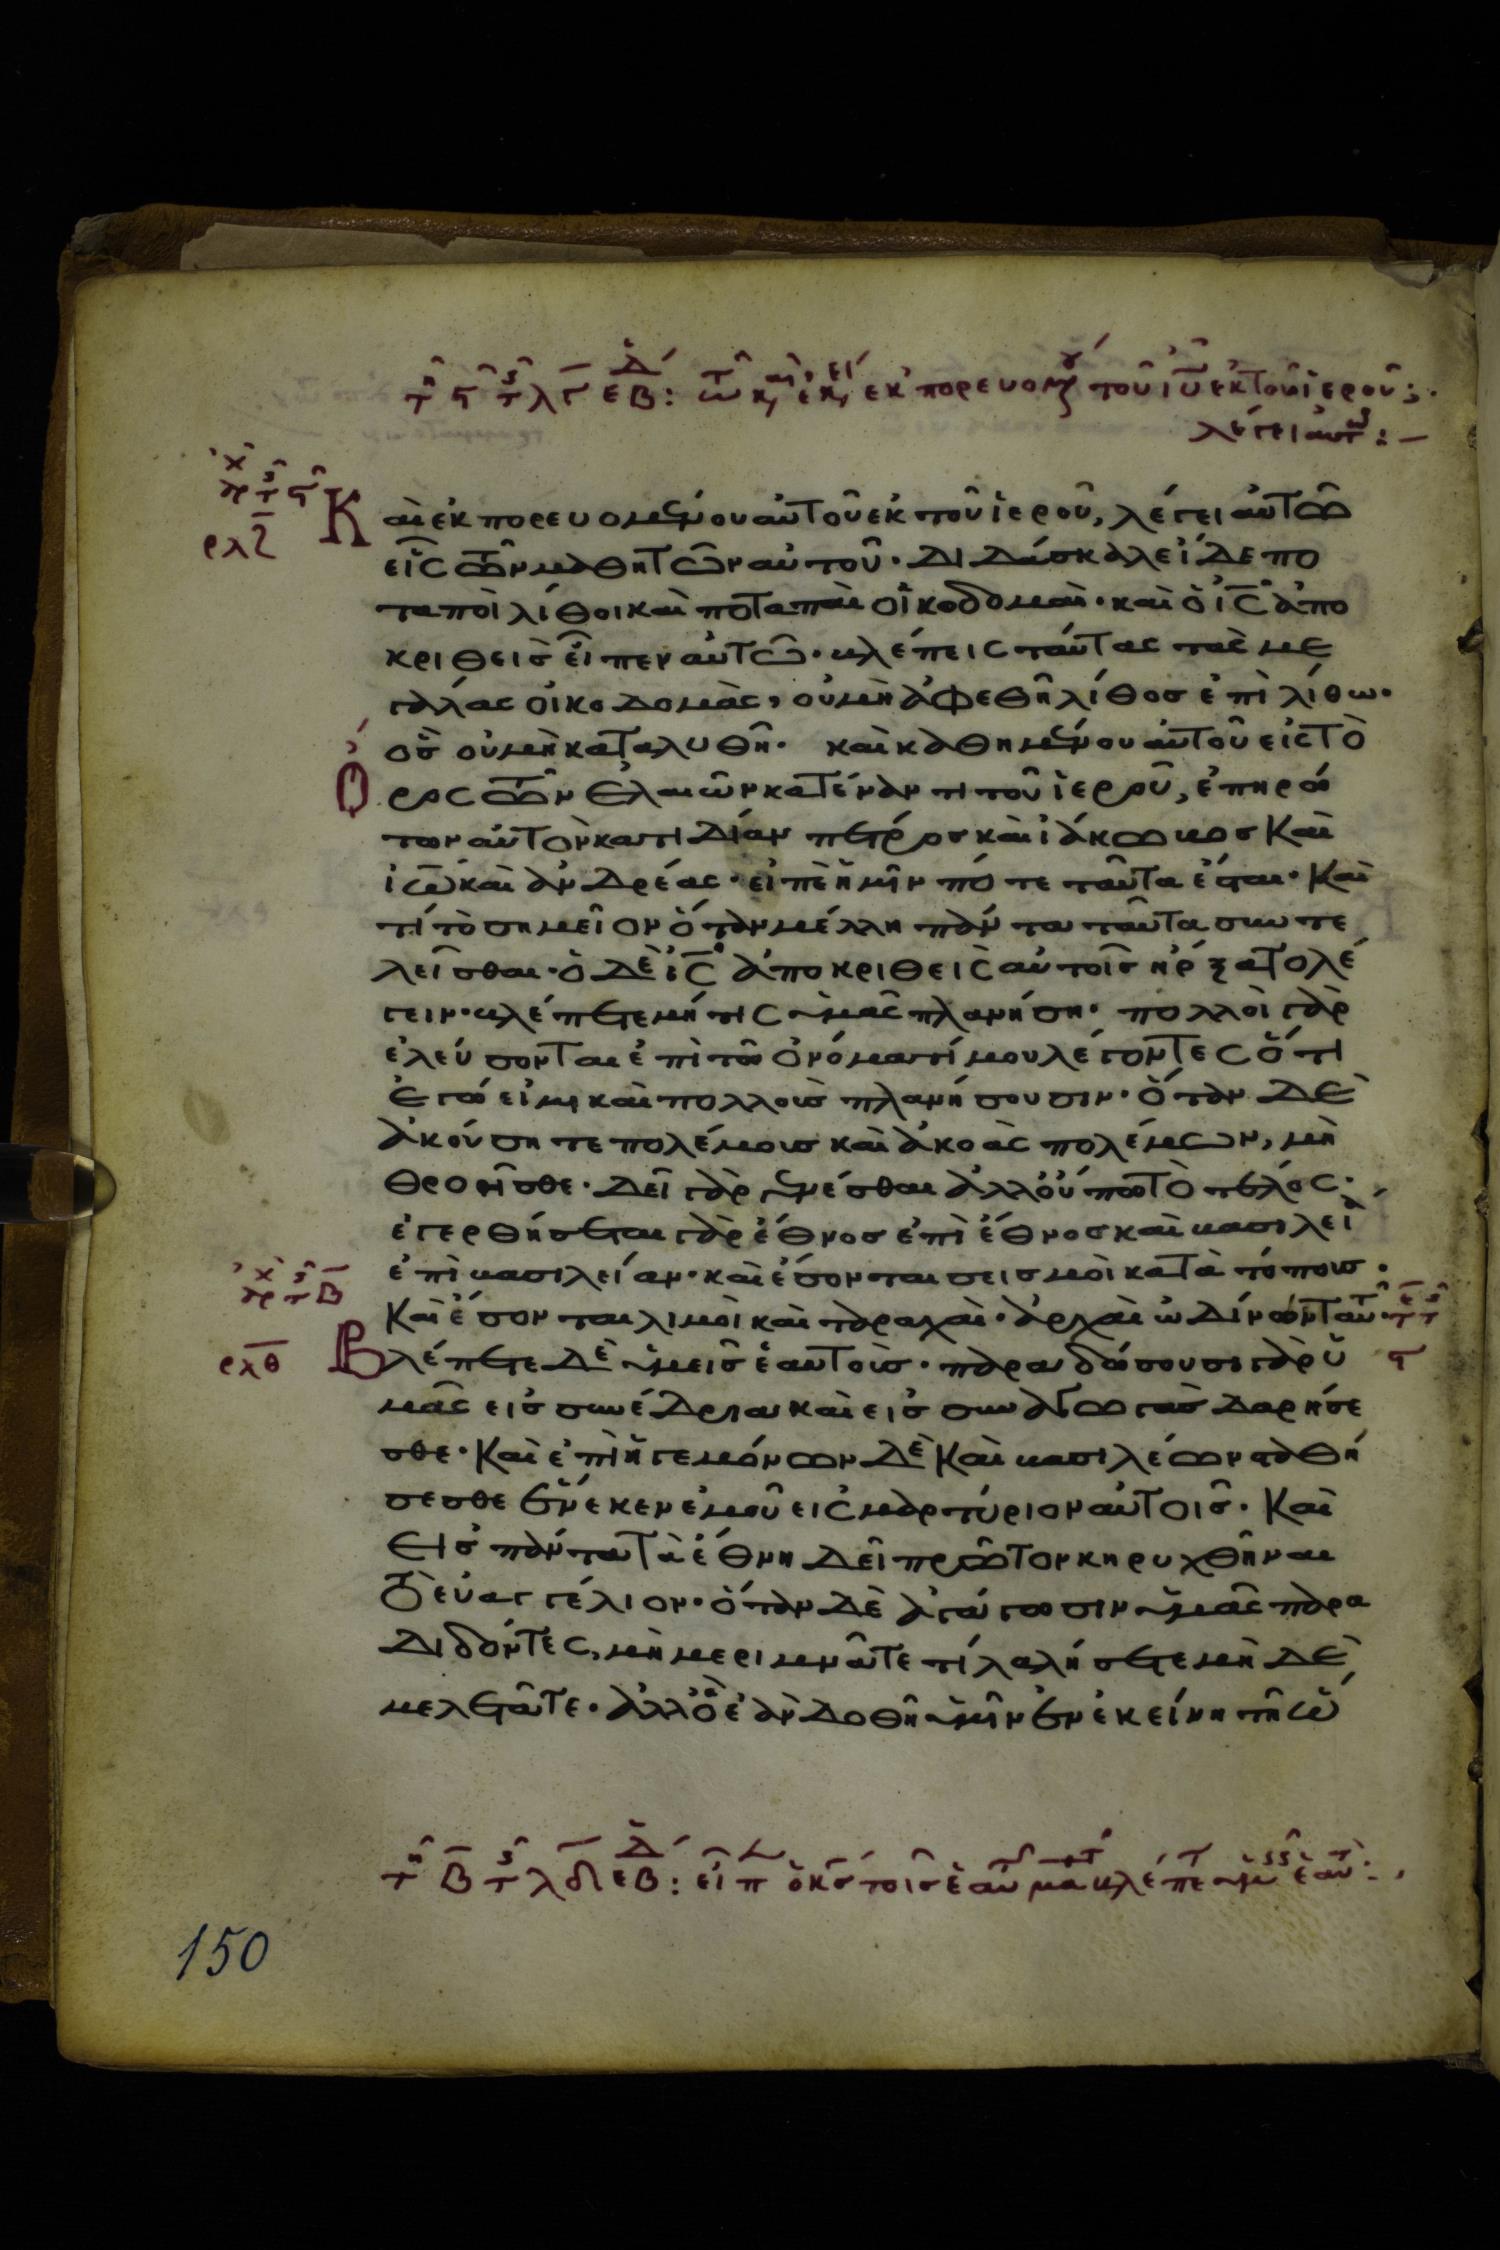 Καὶ ἐκπορευομένου αὐτοῦ ἐκ τοῦ ἱεροῦ, λέγει αὐτῶ
εἷς τῶν μαθητῶν αὐτοῦ· Διδάσκαλε ἴδε πο
ταποὶ λίθοι καὶ ποταπαὶ οἰκοδομαί· καὶ ὁ ις ἀπο
κριθεὶς εἶπεν αὐτῶ· βλέπεις ταύτας τὰς με
γάλας οἰκοδομάς, οὐ μὴ ἀφεθῆ λίθος ἐπὶ λίθω·
ὃς οὐ μὴ καταλυθῆ· καὶ καθημένου αὐτοῦ εἰς τὸ
ὄρος τῶν ἐλαιῶν κατέναντι τοῦ ἱεροῦ, ἐπηρώ
των αὐτὸν κατιδίαν πέτρος καὶ ἰάκωβος καὶ
ἰω καὶ ἀνδρέας· εἰπὲ ἡμῖν πότε ταῦτα ἔσται· καὶ
τί τὸ σημεῖον ὅταν μέλλη πάντα ταῦτα συντε
λεῖσθαι· ὁ δὲ ις ἀποκριθεὶς αὐτοῖς ἤρξατο λέ
γειν· βλέπετε μή τις ὑμᾶς πλανήση· πολλοὶ γὰρ
ἐλεύσονται ἐπὶ τῶ ὀνόματί μου λέγοντες ὅτι
ἐγώ εἰμι καὶ πολλοὺς πλανήσουσιν· ὅταν δὲ
ἀκούσητε πολέμους καὶ ἀκοὰς πολέμων, μὴ
θροῆσθε· δεῖ γὰρ γενέσθαι ἀλλ' οὔπω τὸ τέλος·
ἐγερθήσεται γὰρ ἔθνος ἐπὶ ἔθνος καὶ βασιλεία
ἐπὶ βασιλείαν· καὶ ἔσονται σεισμοὶ κατὰ τόπους·
καὶ ἔσονται λιμοὶ καὶ ταραχαί· ἀρχαὶ ὠδίνων ταῦτ
Βλέπετε δὲ ὑμεῖς ἑαυτούς· παραδώσουσι γὰρ ὑ
μᾶς εἰς συνέδρια καὶ εἰς συναγωγὰς δαρήσε
σθε· καὶ ἐπὶ ἡγεμόνων δὲ καὶ βασιλέων σταθή
σεσθε ἕνεκεν ἐμοῦ εἰς μαρτύριον αὐτοῖς· καὶ
εἰς πάντα τὰ ἔθνη δεῖ πρῶτον κηρυχθῆναι
τὸ εὐαγγέλιον· ὅταν δὲ ἀγάγωσιν ὑμᾶς παρα
διδόντες, μὴ μεριμνᾶτε τί λαλήσετε μὴ δὲ
μελετᾶτε· ἀλλ' ὃ ἐὰν δοθῆ ὑμῖν ἐν ἐκείνη τῆ ὥ
150